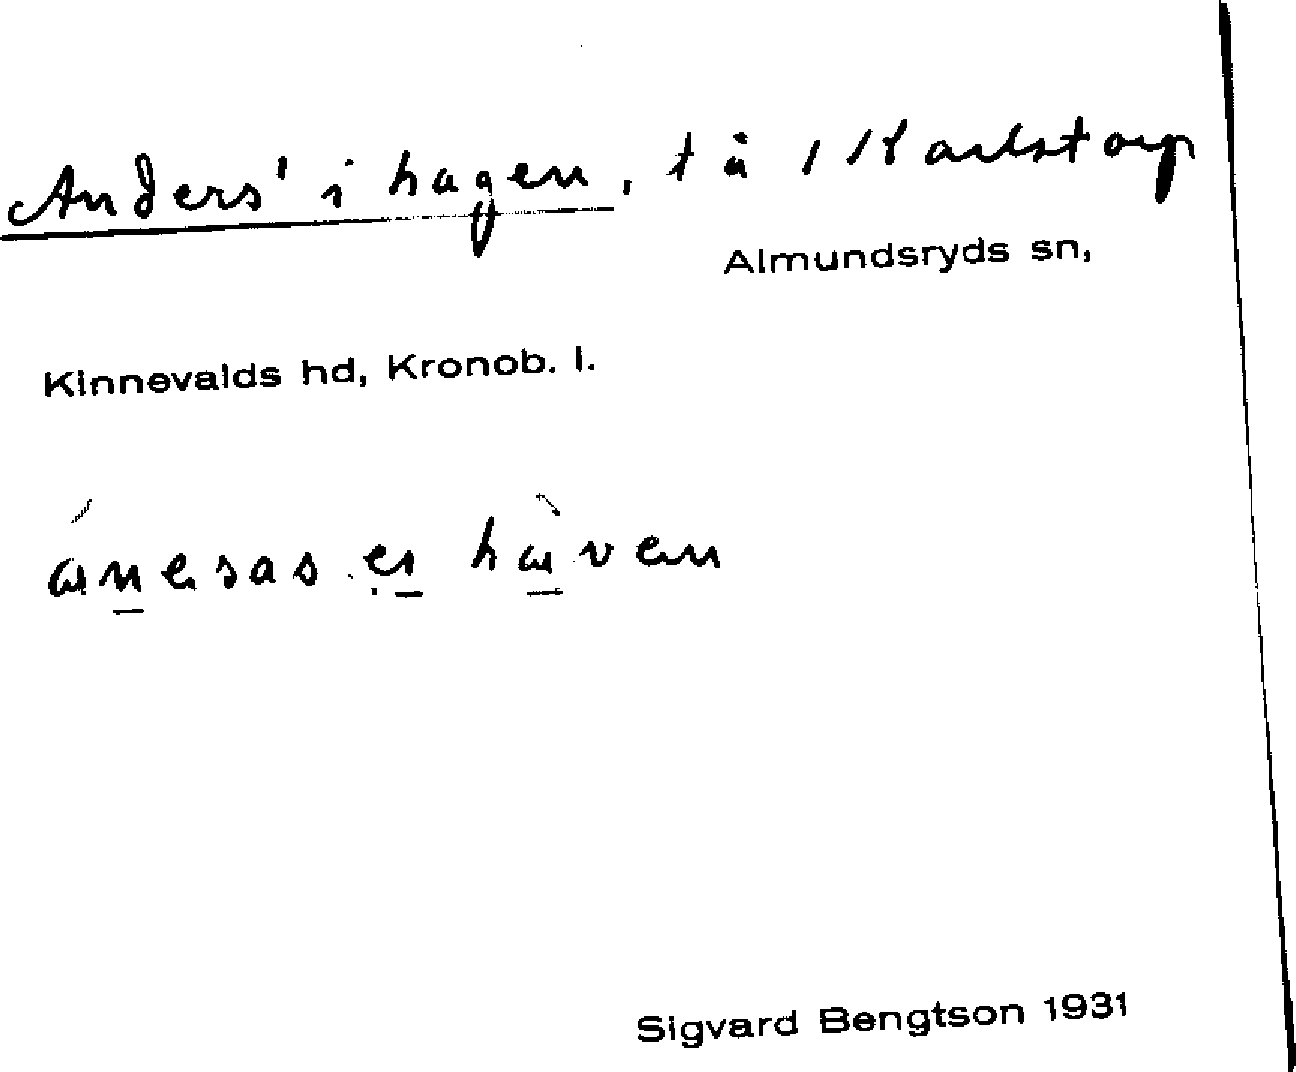 Anders' i hagen, tå / Karlstorp
Almundsryds sn,
Kinnevalds hd, Kronob. l.
Sigvard Bengtson 1931